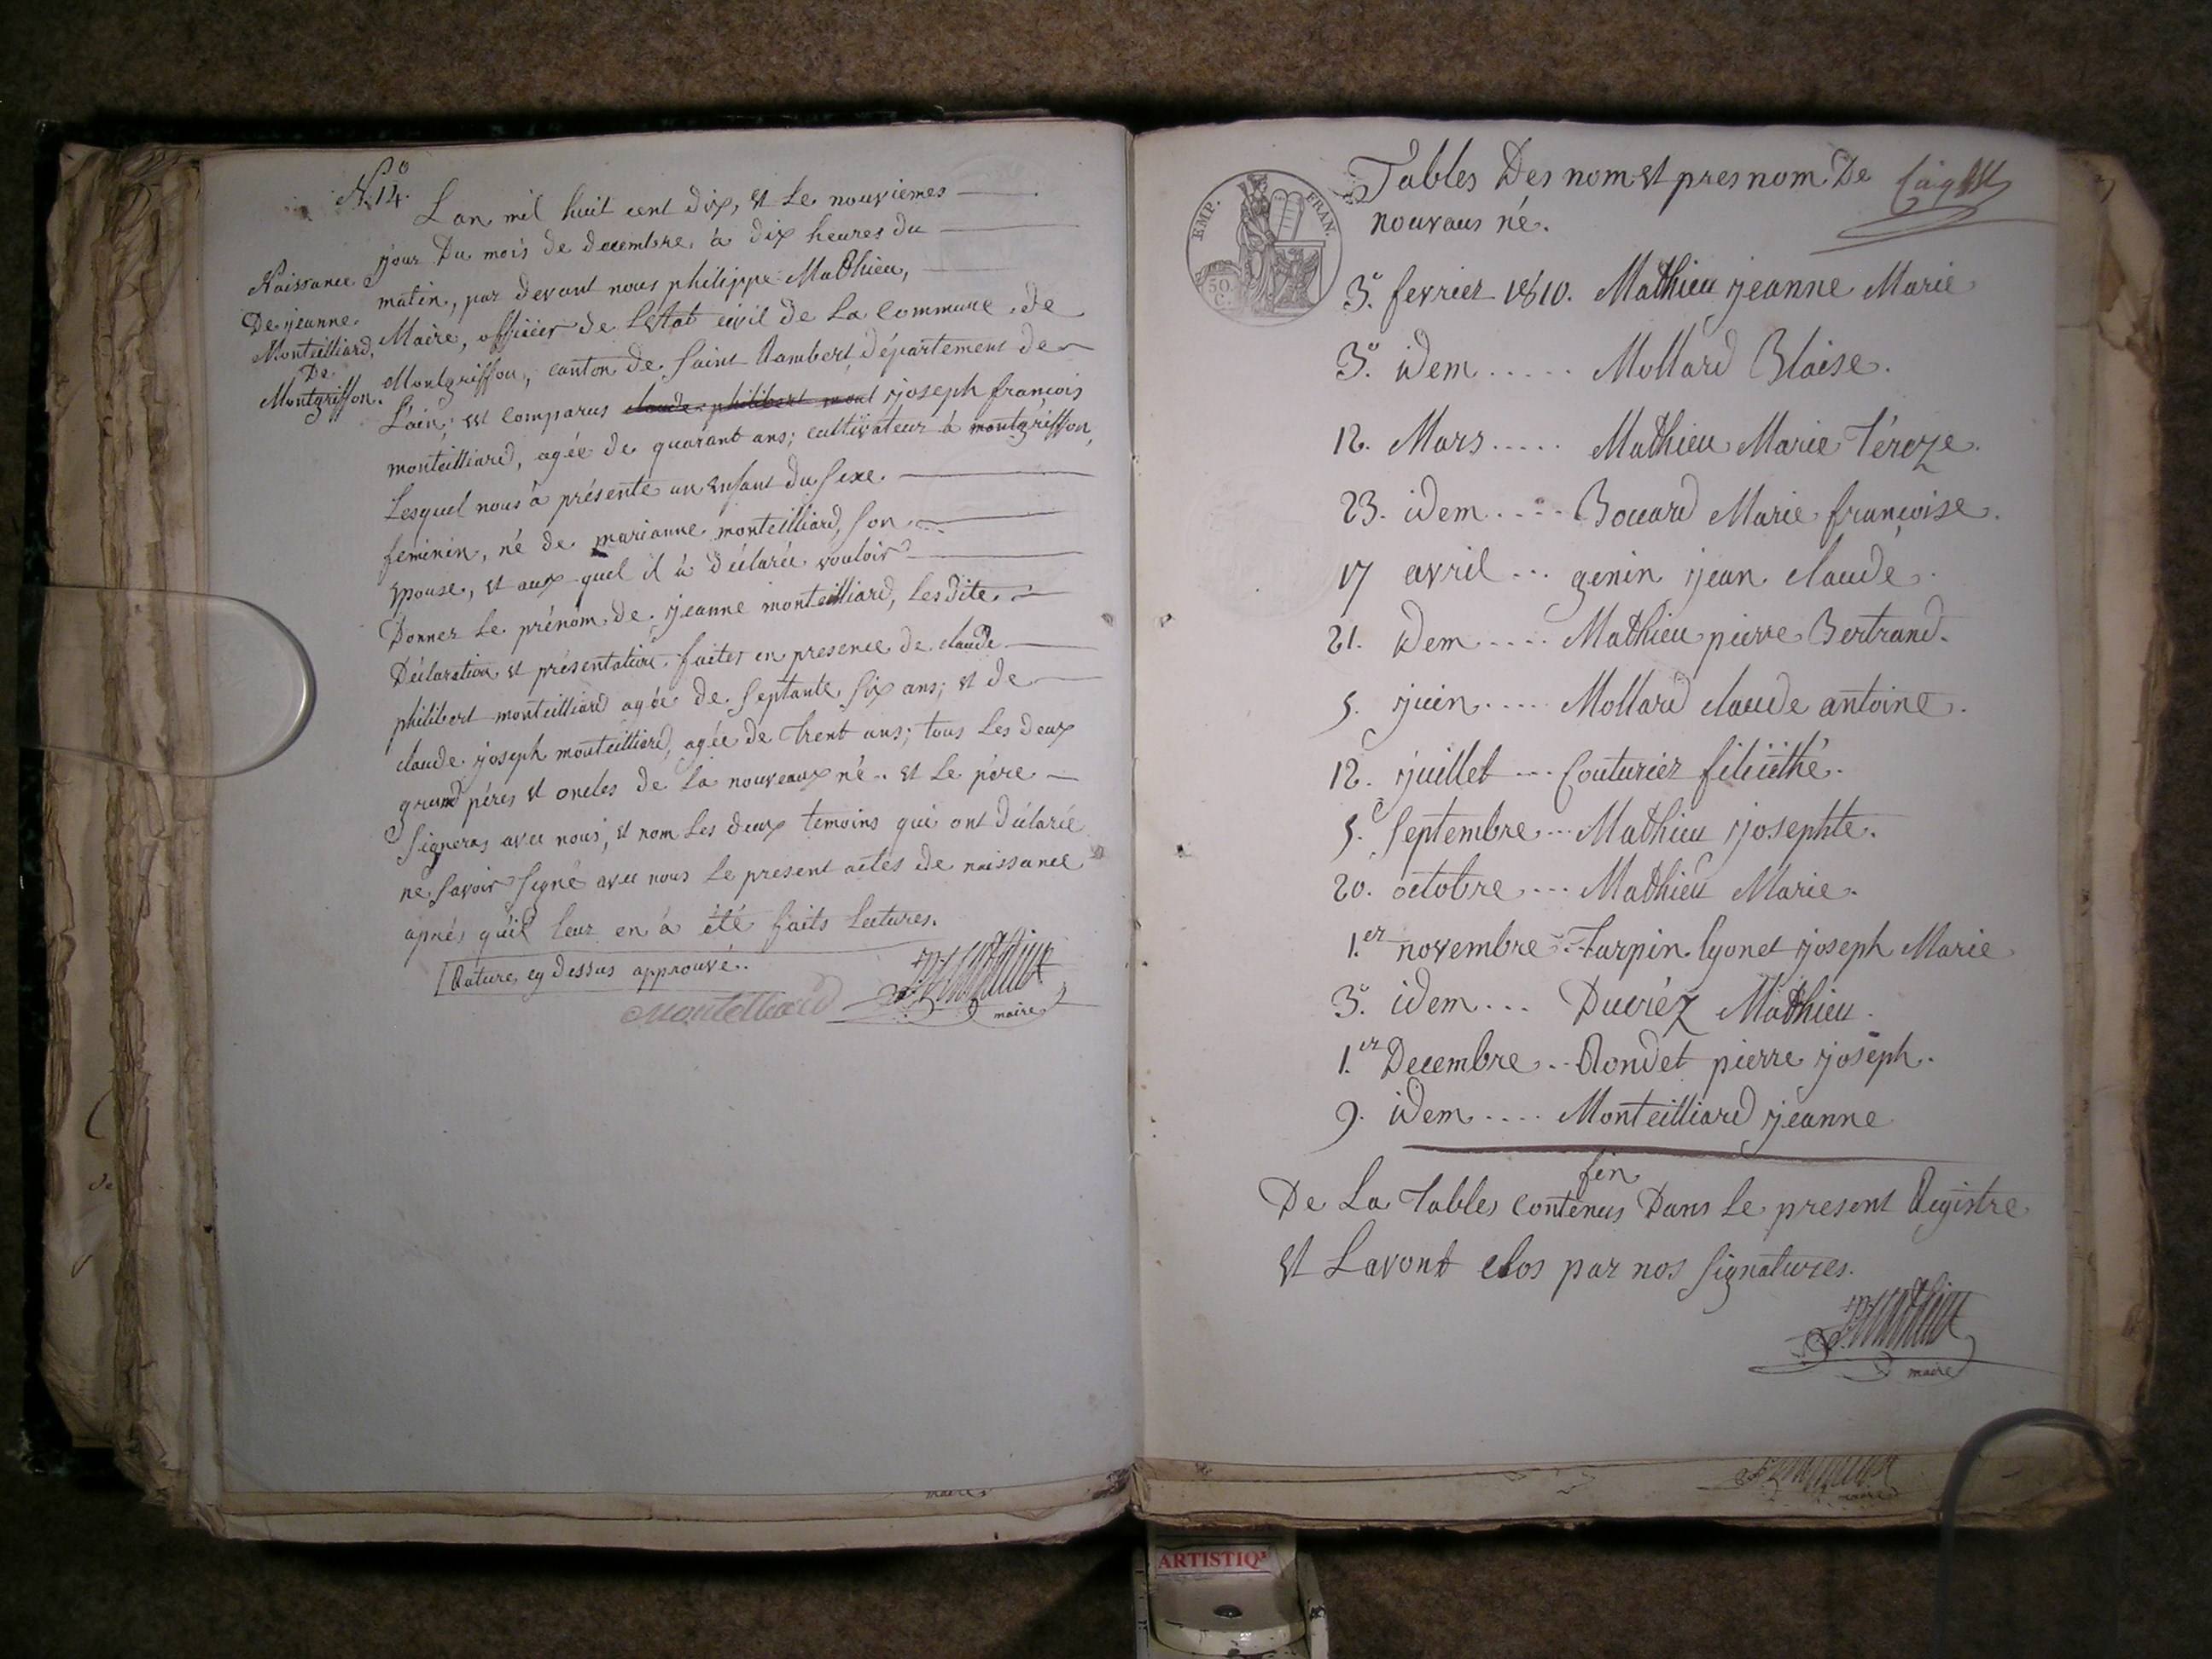 No 14.
Lan mil huit cent dix, et Le nouviemes
jour Du mois de decembre, à dix heures du
matin, par devant nous philippe Mathieu,
Maire, officier de L'Etat civil de La Commune de
Montgriffon, canton de Saint Rambert, département de
L'ain; est comparus claude philibert mont joseph françois
monteilliard, agée de quarant ans; cultivateur à montgriffon,
Lesquel nous à présente un enfant du Sexe.
feminin, né de marianne monteilliard, Son
epouse, et aux quel il à déclarée vouloir
Donner Le prénom de jeanne monteilliard, Lesdite
Déclaration et présentation faites en presence de claude
philibert monteilliard agée de Septante Six ans; et de
claude joseph monteilliard, agée de trent ans; tous Les deux
grand péres et oncles de La nouveaux né. et Le pére
Signeras avec nous, et nom Les deux temoins qui ont Déclarée
ne Savoir Signé avec nous Le present actes de naissance
aprés quil leur en à été faits Lectures.
Rature cy dessus approuvé..
Monteilliard
P. Mathieu
maire
Naissance
De jeanne
Monteilliard,
De
Montgriffon.
EMP. FRAN.
50 C.
Tables Des nom et pres nom De
nouvaus né.
3. fevrier 1810. Mathieu jeanne Marie
3. idem ..... Mollard Blaise.
12. Mars ..... Mathieu Marie Téreze.
23. idem .... Bouard Marie françoise.
17 avril ... genin jean claude.
21. idem .... Mathieu pierre Bertrand.
5. juin .... Mollard claude antoine.
12. juillet ... Couturier féliiethé.
5. Septembre ... Mathieu josephte.
20. octobre ... Mathieu Marie.
1.er novembre ... Turpin lyonet joseph Marie
3. idem ... Ducréz Mathieu.
1.er Decembre .. Rondet pierre joseph.
9. idem .... Monteilliard jeanne
fin
De La Tables contenus Dans Le present Registre
et Lavont clos par nos Signatures.
P. Mathieu
maire
maire
ARTISTIQ